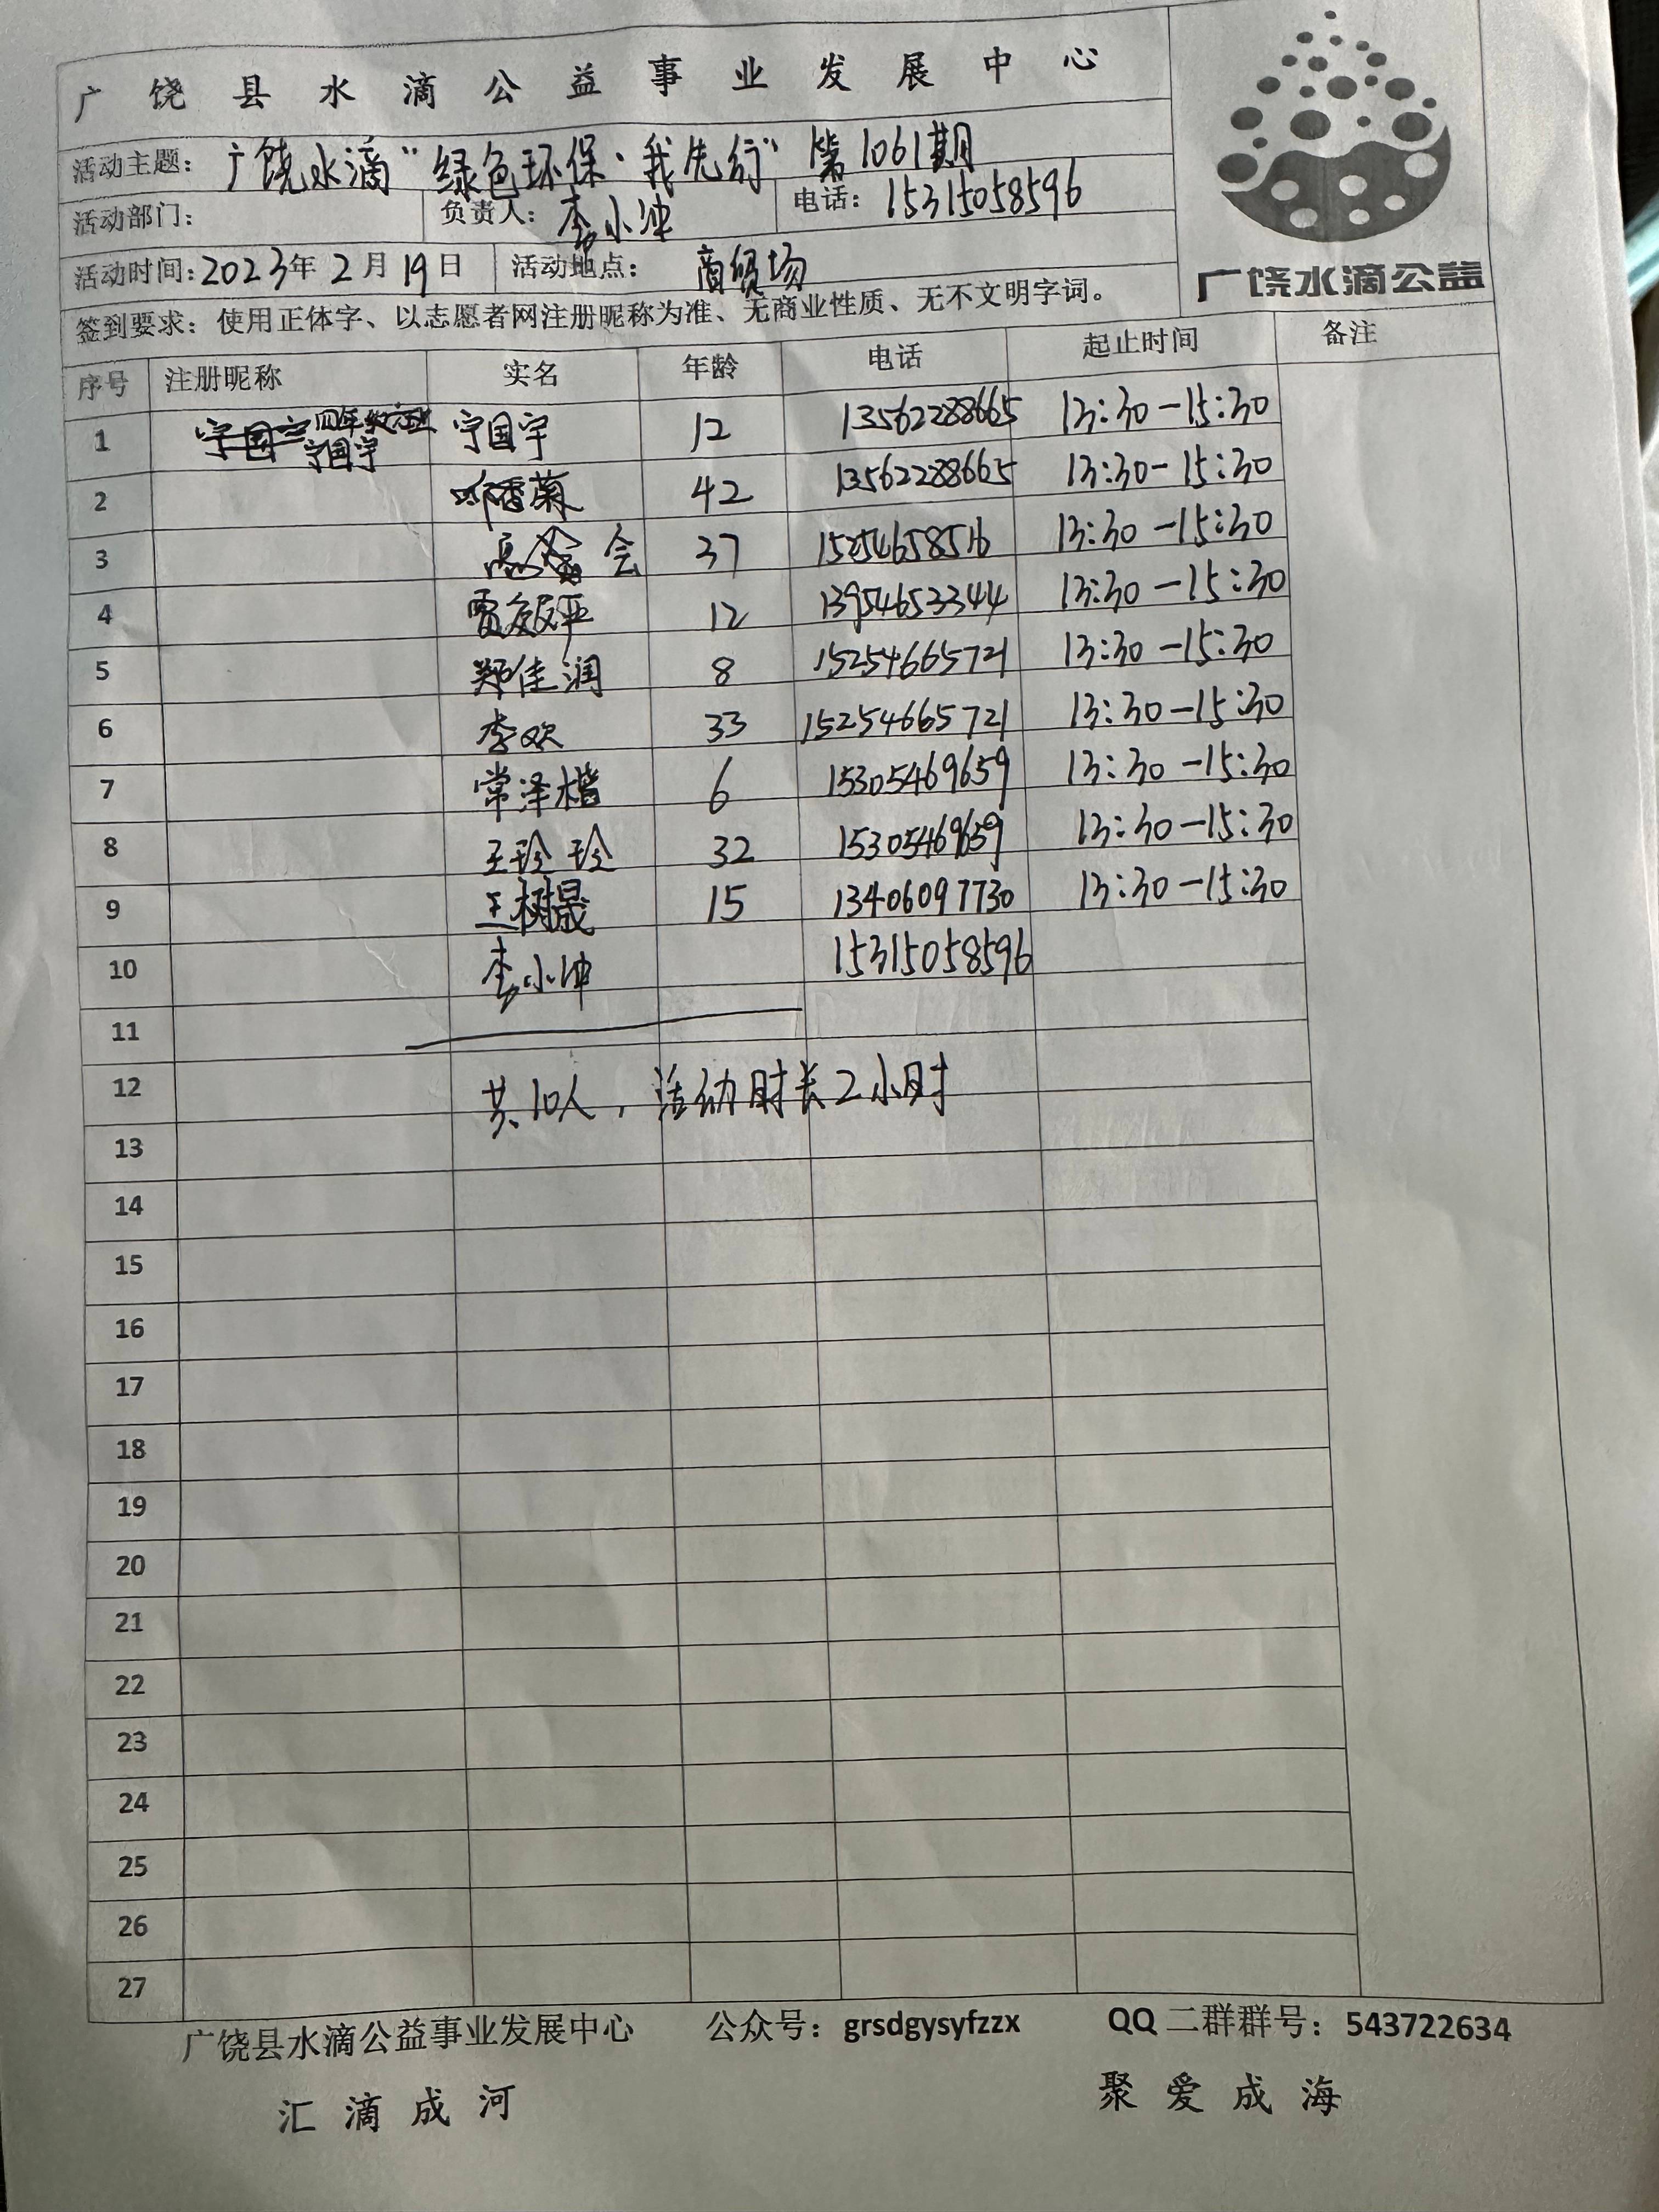 广饶县水滴公益事业发展中心
广饶水滴公益
活动主题：广饶水滴“绿色环保·我先行”第1061期
活动部门： 负责人：李小坤 电话：15315058596
活动时间：2023年2月19日 活动地点：商贸场
签到要求：使用正体字、以志愿者网注册昵称为准、无商业性质、无不文明字词。
序号 注册昵称 实名 年龄 电话 起止时间 备注
1 宁国宇 宁国宇 12 13562288665 13:30-15:30
2 香菊 42 13562288665 13:30-15:30
3 高 会 37 15254658516 13:30-15:30
4 平 12 13954653344 13:30-15:30
5 郑佳润 8 15254665721 13:30-15:30
6 李欢 33 15254665721 13:30-15:30
7 常泽楷 6 15305469659 13:30-15:30
8 王玲玲 32 15305469659 13:30-15:30
9 王树晟 15 13406097730 13:30-15:30
10 李小坤 15315058596
11
12 共10人，活动时长2小时
13
14
15
16
17
18
19
20
21
22
23
24
25
26
27
广饶县水滴公益事业发展中心 公众号：grsdgysyfzzx QQ二群群号：543722634
汇滴成河 聚爱成海